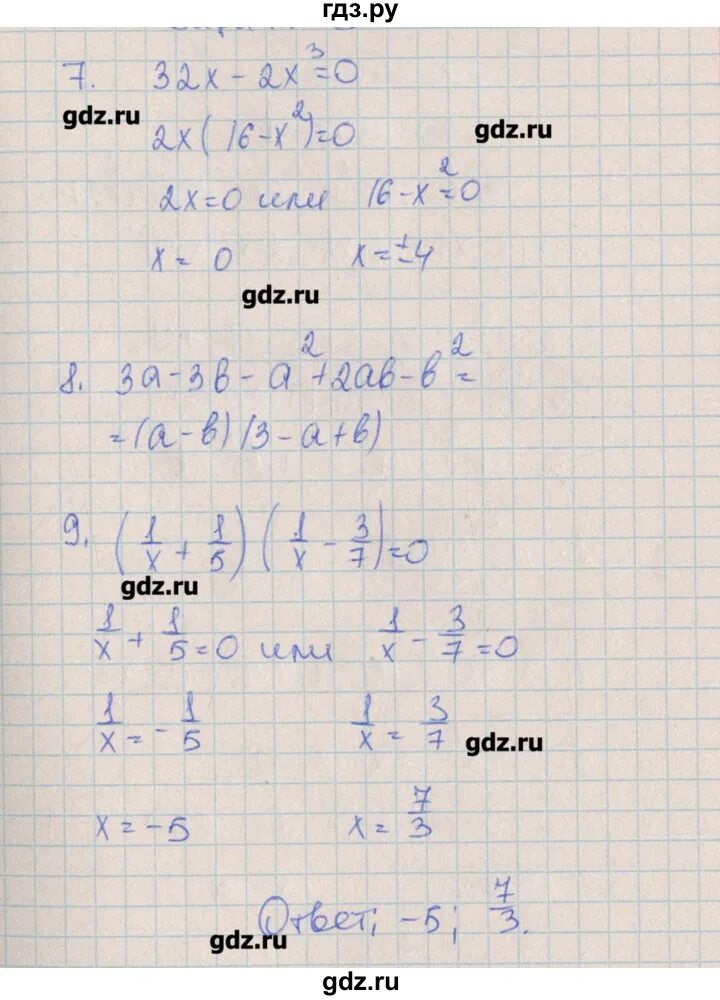 гдз.ру
7. 32x - 2x³ = 0
gdz.ru
2x(16 - x²) = 0
gdz.ru
2x = 0 или 16 - x² = 0
x = 0 x = ±4
gdz.ru
8. 3a - 3b - a² + 2ab - b² =
= (a - b)(3 - a + b)
9. (1/x + 1/5)(1/x - 3/7) = 0
gdz.ru
1/x + 1/5 = 0 или 1/x - 3/7 = 0
1/x = -1/5 1/x = 3/7
gdz.ru
x = -5 x = 7/3
Ответ: -5; 7/3.
gdz.ru
gdz.ru